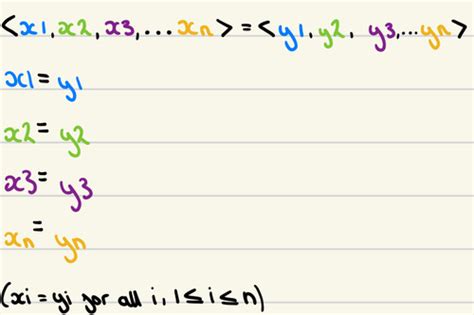 <x1, x2, x3, ... xn> = <y1, y2, y3, ... yn>
x1 = y1
x2 = y2
x3 = y3
xn = yn
(xi = yi for all i, 1 ≤ i ≤ n)